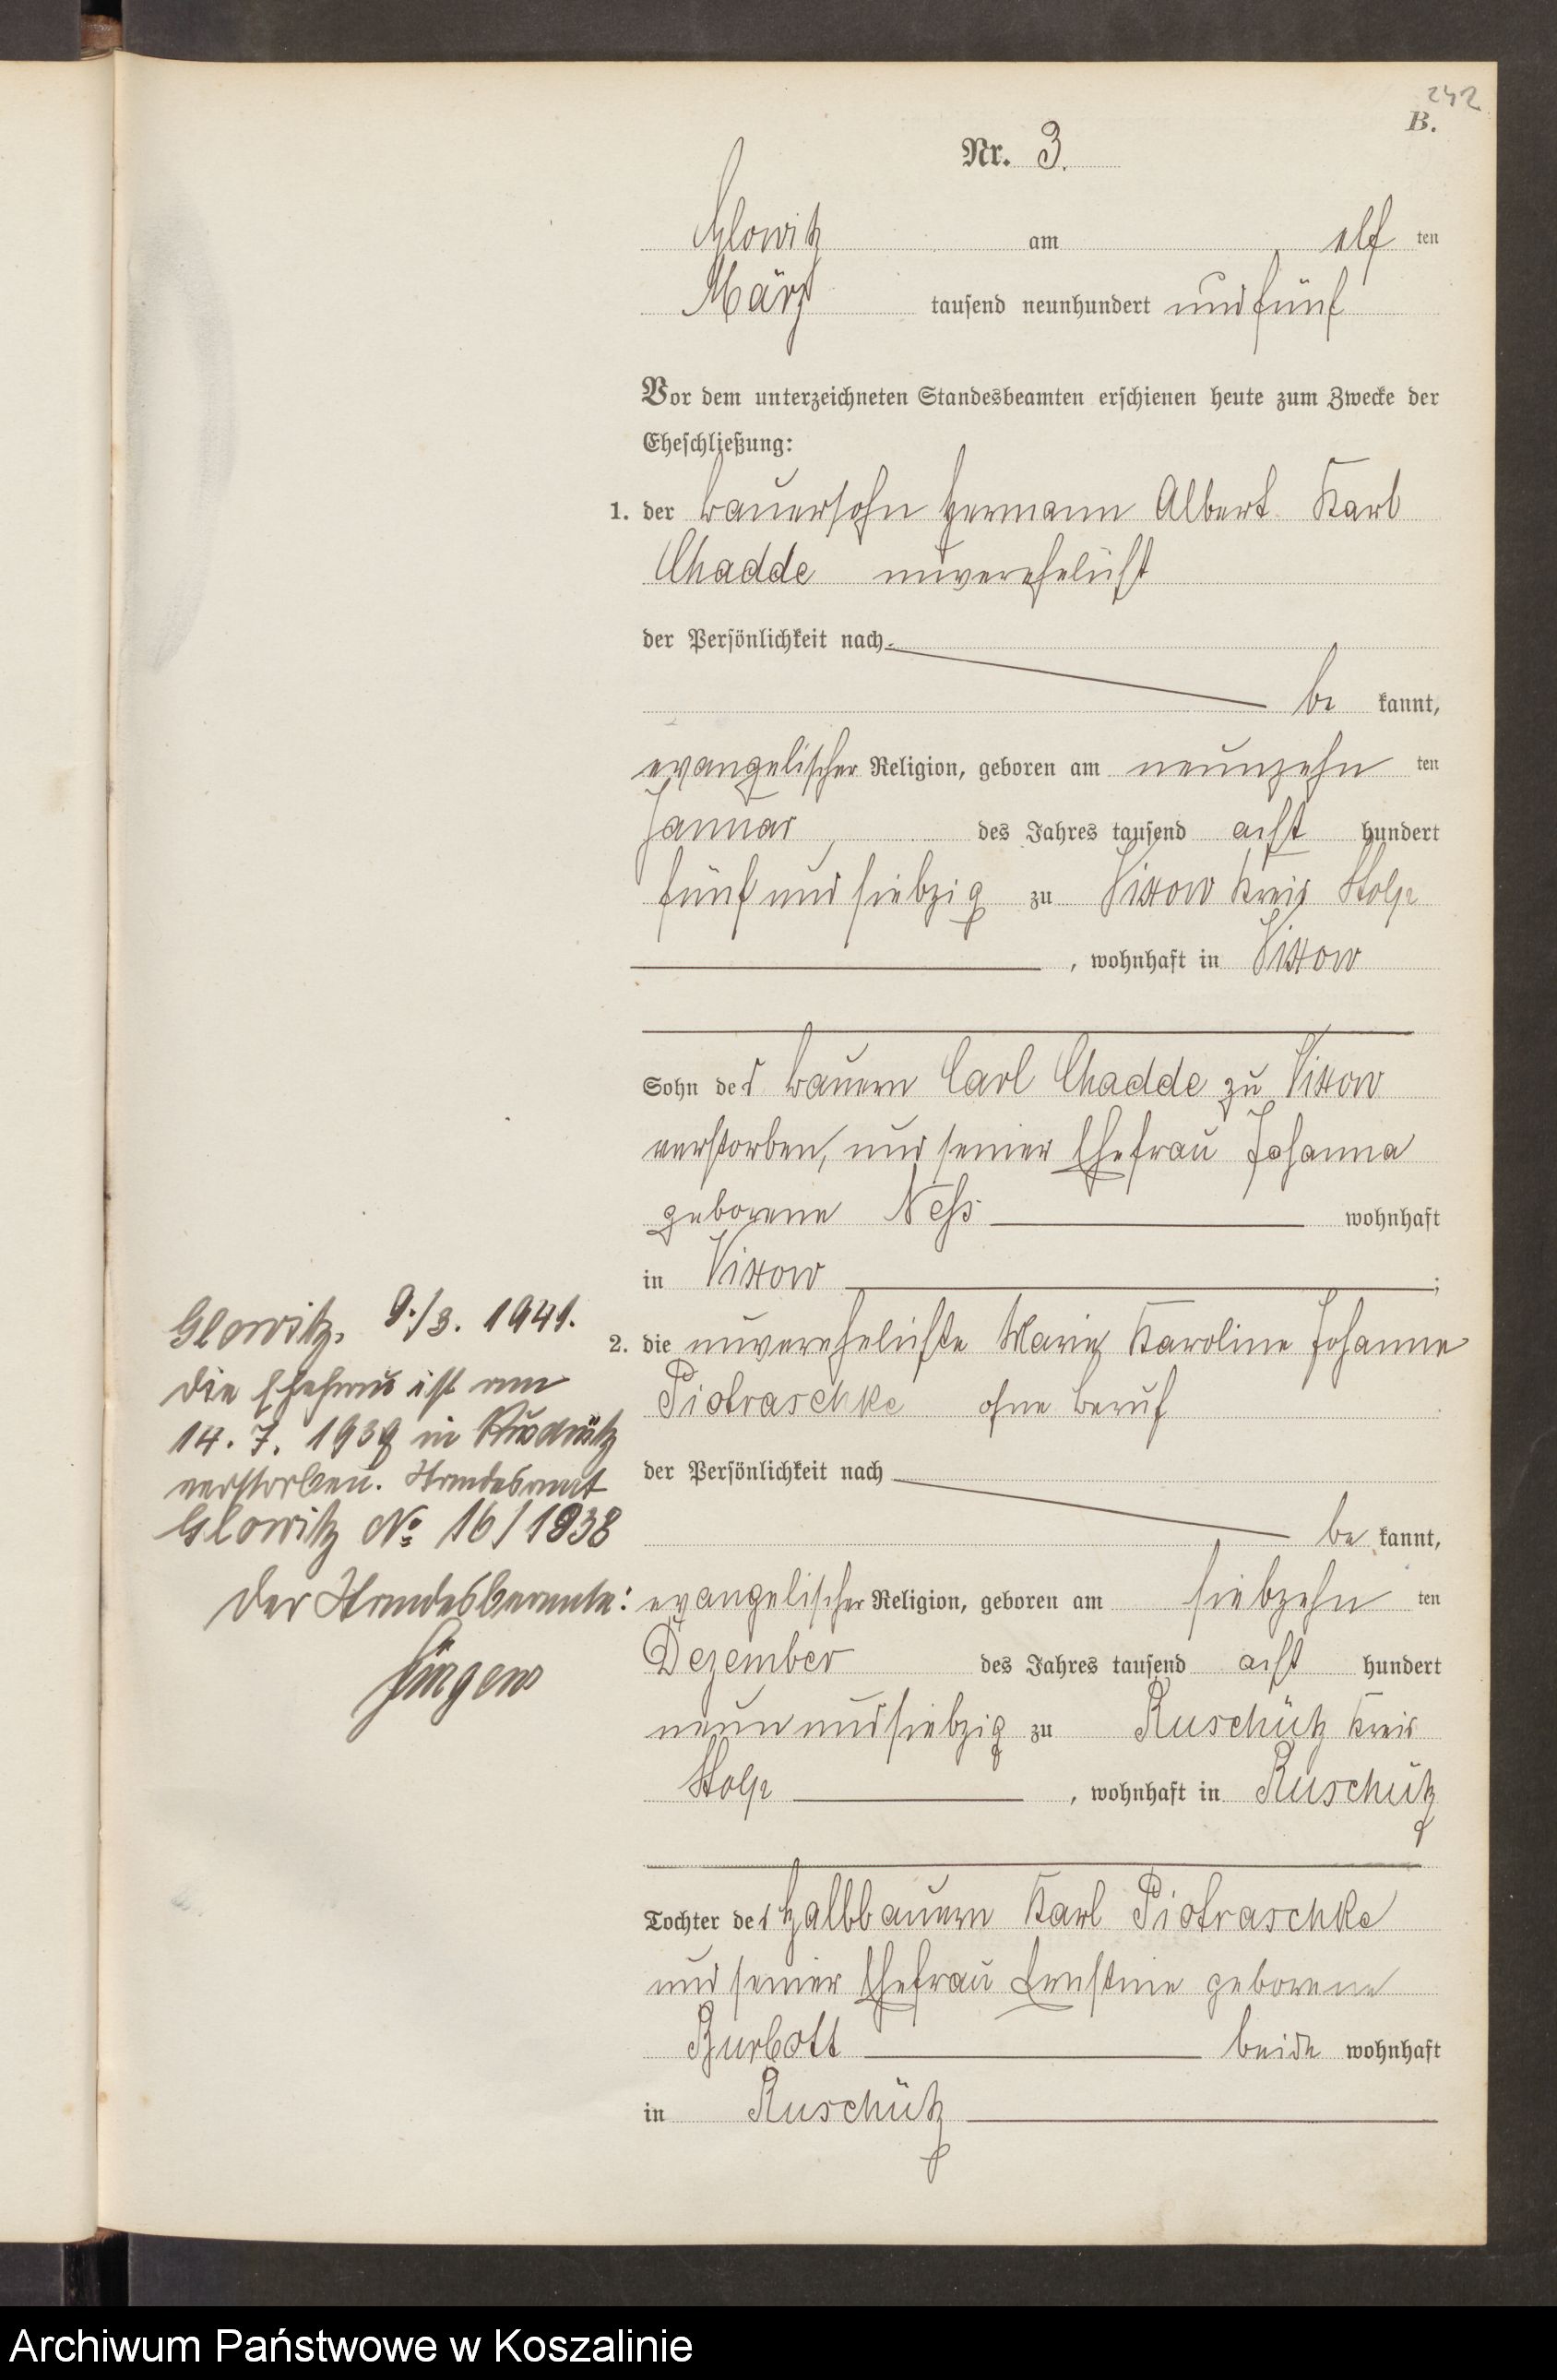 242
B.
Nr. 3.
Glowitz am elf ten
März tausend neunhundert und fünf
Vor dem unterzeichneten Standesbeamten erschienen heute zum Zwecke der
Eheschließung:
1. der Bauersohn Hermann Albert Karl
Chadde unverehelicht
der Persönlichkeit nach
be kannt,
evangelischer Religion, geboren am neunzehn ten
Januar des Jahres tausend acht hundert
fünf und siebzig zu Vixow Kreis Stolp
, wohnhaft in Vixow
Sohn des Bauern Carl Chadde zu Vixow
verstorben, und seiner Ehefrau Johanna
geborene Ness wohnhaft
in Vixow ;
2. die unverehelichte Marie Karoline Johanne
Piotraschke ohne Beruf
der Persönlichkeit nach
be kannt,
evangelischer Religion, geboren am siebzehn ten
Dezember des Jahres tausend acht hundert
neun und siebzig zu Ruschütz Kreis
Stolp , wohnhaft in Ruschütz
Tochter des Halbbauern Karl Piotraschke
und seiner Ehefrau Ernstine geborene
Burbott beide wohnhaft
in Ruschütz
Glowitz, 9./3. 1941.
Die Ehefrau ist am
14. 7. 1938 in
verstorben. Standesamt
Glowitz No 16/1938
Der Standesbeamte:
Jürgens
Archiwum Państwowe w Koszalinie